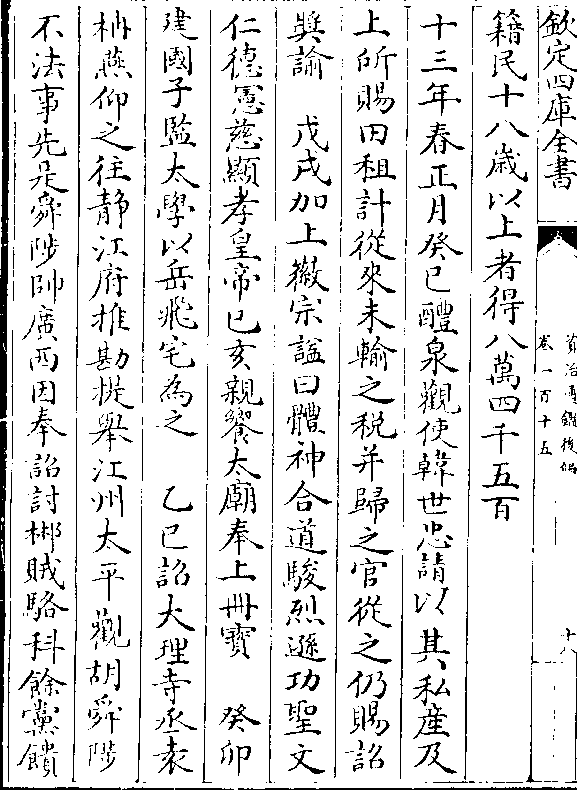 欽定四庫全書
資治通鑑後編
卷一百十五
十八
籍民十八歲以上者得八萬四千五百
十三年春正月癸巳醴泉觀使韓世忠請以其私産及
上所賜田租計從來未輸之税并歸之官從之仍賜詔
奬諭　戊戌加上徽宗諡曰體神合道駿烈遜功聖文
仁德憲慈顯孝皇帝已亥親饗太廟奉上冊寶　癸卯
建國子監太學以岳飛宅為之　乙巳詔大理寺丞袁
柟燕仰之往静江府推勘提舉江州太平觀胡舜陟
不法事先是舜陟帥廣西因奉詔討郴賊駱科餘黨饋